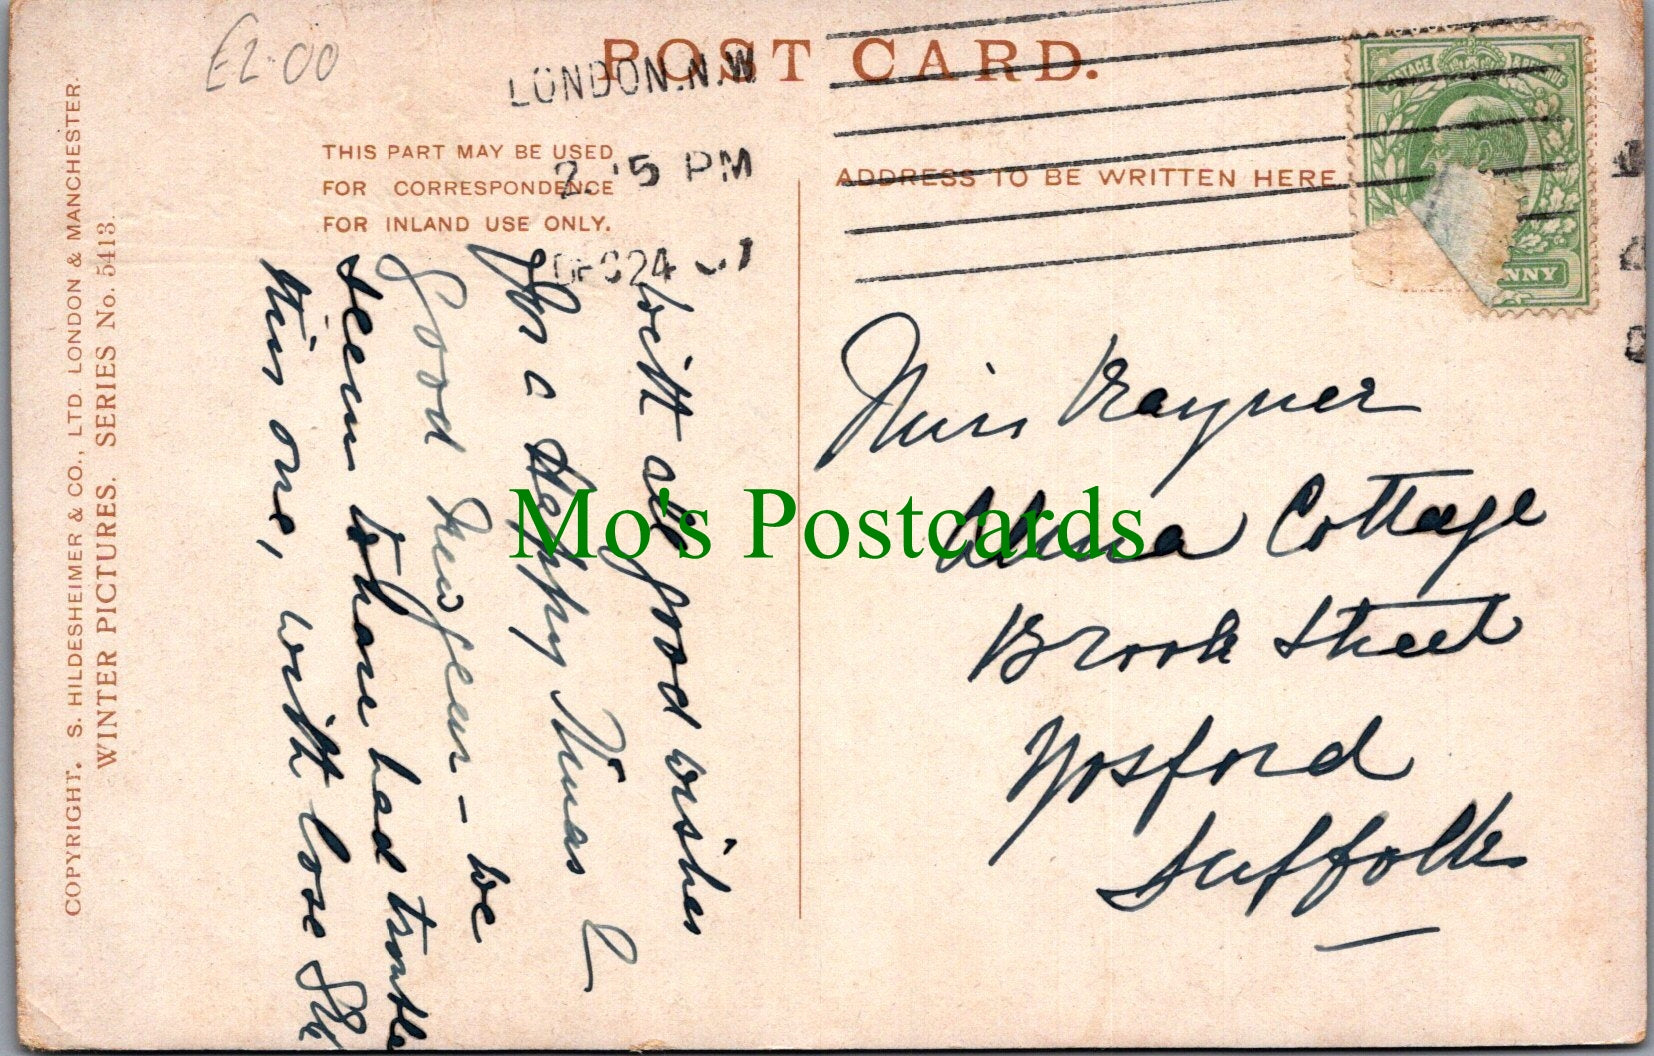 £2.00
POST CARD.
LONDON.N.W
2.15 PM
DEC 24 07
THIS PART MAY BE USED
FOR CORRESPONDENCE
FOR INLAND USE ONLY.
ADDRESS TO BE WRITTEN HERE
POSTAGE REVENUE
NNY
COPYRIGHT. S. HILDESHEIMER & CO., LTD. LONDON & MANCHESTER.
WINTER PICTURES. SERIES No. 5413.
With all good wishes
for a Happy Xmas &
Good New Year - we
seem to have had trouble
this one, with love
Miss Rayner
Alma Cottage
Brook Street
Yoxford
Suffolk
Mo's Postcards